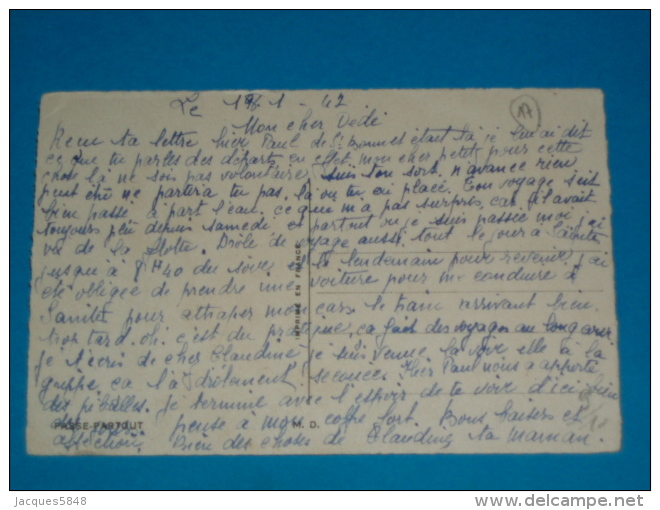 Le 19-1-42
17
Mon cher Dédé
Reçu ta lettre hier Paul de St Bonnet était là je lui ai dit
ce que tu parles des départs en effet, mon cher petit pour cette
chose là ne sois pas volontaire suis ton sort. n'avance rien
peut être ne partira tu pas. là ou tu es placé. Ton voyage s'est
bien passé à part l'eau. ce qui m'a pas surpris, car il avait
toujours plu depuis samedi, et partout ou je suis passée moi j'ai
vu de la flotte. Drôle de voyage aussi. tout le jour à
jusqu'à 8 H 40 du soir et le lendemain pour revenir j'ai
été obligée de prendre une voiture pour me conduire à
pour attraper mon cars. le train arrivant bien
trop tard. oh! c'est du ça fait des voyages
je t'écris de chez Claudine je suis venue la voir elle à la
grippe ça l'a drôlement secouée. Hier Paul nous a apporté
des Je termine avec l'espoir de te voir d'ici bien
pense à mon coffre fort. Bons baisers et
affection Bien des choses de Claudine ta Maman.
IMPRIMÉ EN FRANCE
PASSE-PARTOUT M. D.
Jacques5848
delcampe.net